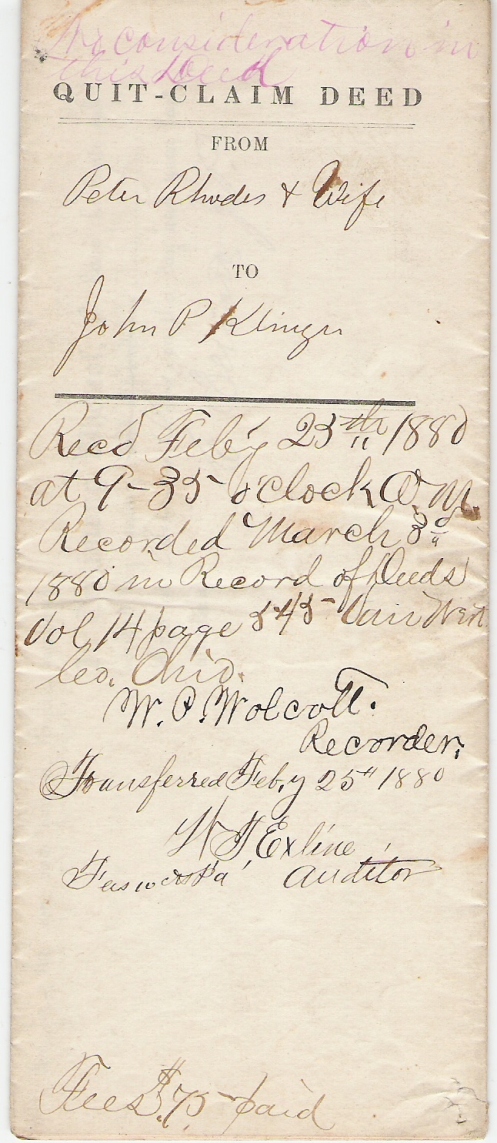 No consideration in
this Deed
QUIT-CLAIM DEED
FROM
Peter Rhodes & Wife
TO
John P Klinger
Recd Feb'y 25th 1880
at 9-35 o'clock A.M.
Recorded March 3d
1880 in Record of Deeds
Vol 14 page 545 Van Wert
Co. Ohio.
W. P. Wolcott.
Recorder.
Transferred Feb,y 25th 1880
Exline
Auditor
Fees $.75 paid